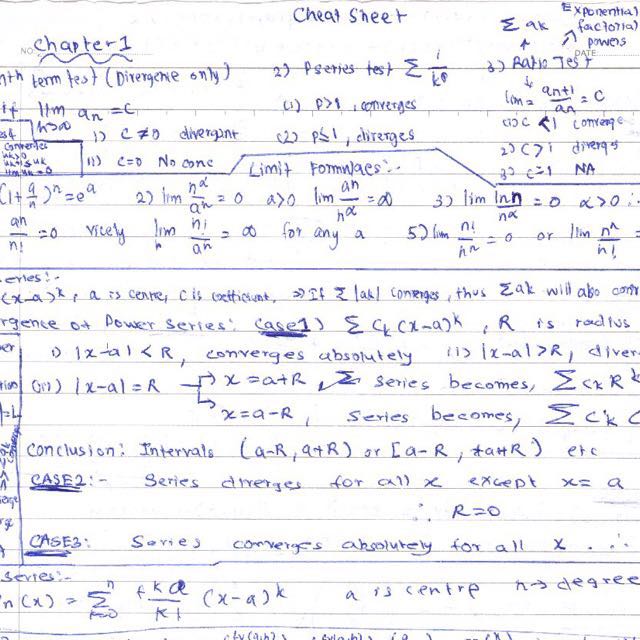 Cheat Sheet
Exponential
factorial
powers
Σ ak
NO.
Chapter 1
DATE
nth term test (Divergence only)
2) P series test Σ 1/k^p
3) Ratio Test
if lim n→∞ an = C
(1) P>1, converges
lim = an+1/an = C
1) C ≠ 0 divergent
(2) P≤1, diverges
1) C < 1 converge
2) C>1 diverges
converges
ii) C=0 No conc
3) C=1 NA
Limit Formulaes:-
(1+a/n)^n = e^a
2) lim n^α/a^n = 0 a>0 lim a^n/n^α = ∞
3) lim ln n/n^α = 0 α>0
a^n/n! = 0 vicely lim n!/a^n = ∞ for any a
5) lim n!/n^n = 0 or lim n^n/n! =
eries:-
(x-a)^k, a is centre, C is coefficient, ⇒ If Σ |ak| converges, thus Σ ak will also conv
rgence of Power Series: Case1) Σ Ck(x-a)^k, R is radius
i) |x-a| < R, converges absolutely ii) |x-a| > R, diver
(iii) |x-a| = R → x = a+R, Series becomes, Σ Ck R^k
→ x = a-R, Series becomes, Σ Ck (
Conclusion: Intervals (a-R, a+R) or [a-R, a+R) etc
CASE2:- Series diverges for all x except x = a
∴ R=0
CASE3: Series converges absolutely for all x. ∴
series:-
n(x) = Σ k=0 n f^k a/k! (x-a)^k a is centre n→ degree